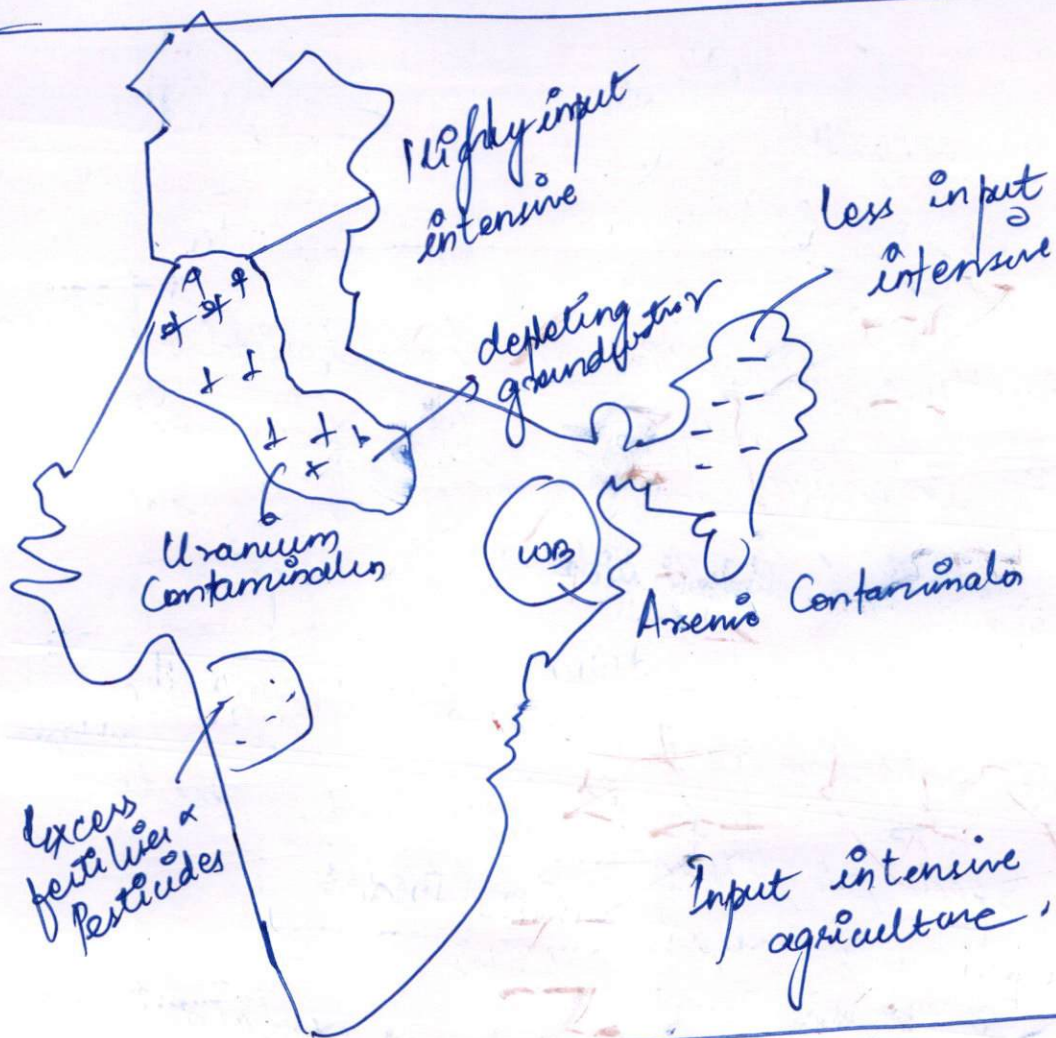 Highly input
intensive
less input
intensive
depleting
groundwater
Uranium
Contamination
WB
Arsenic Contamination
Excess
fertilizer &
Pesticides
Input intensive
agriculture.